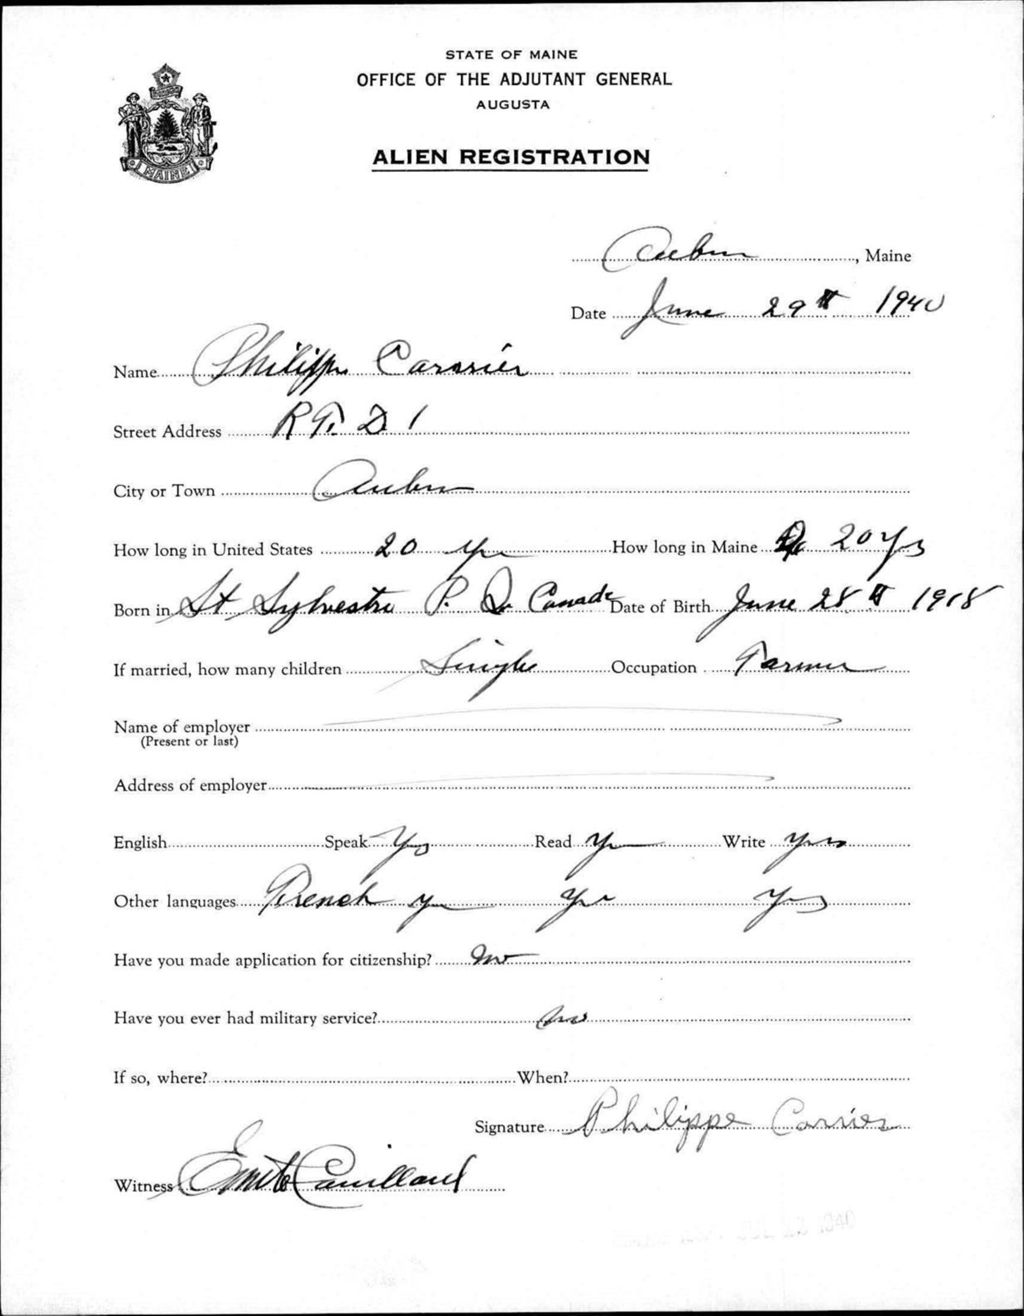 STATE OF MAINE
OFFICE OF THE ADJUTANT GENERAL
AUGUSTA
MAINE
ALIEN REGISTRATION
Auburn, Maine
Date June 29th 1940
Name Philippe Carrier
Street Address R F. D 1
City or Town Auburn
How long in United States 20 yrs How long in Maine 20 Yrs
Born in St Sylvestre P. Q. Canada Date of Birth June 28th 1918
If married, how many children Single Occupation Farmer
Name of employer
(Present or last)
Address of employer
English Speak Yes Read Yes Write Yes
Other languages French yes yes yes
Have you made application for citizenship? no
Have you ever had military service? no
If so, where? When?
Signature Philippe Carrier
Witness